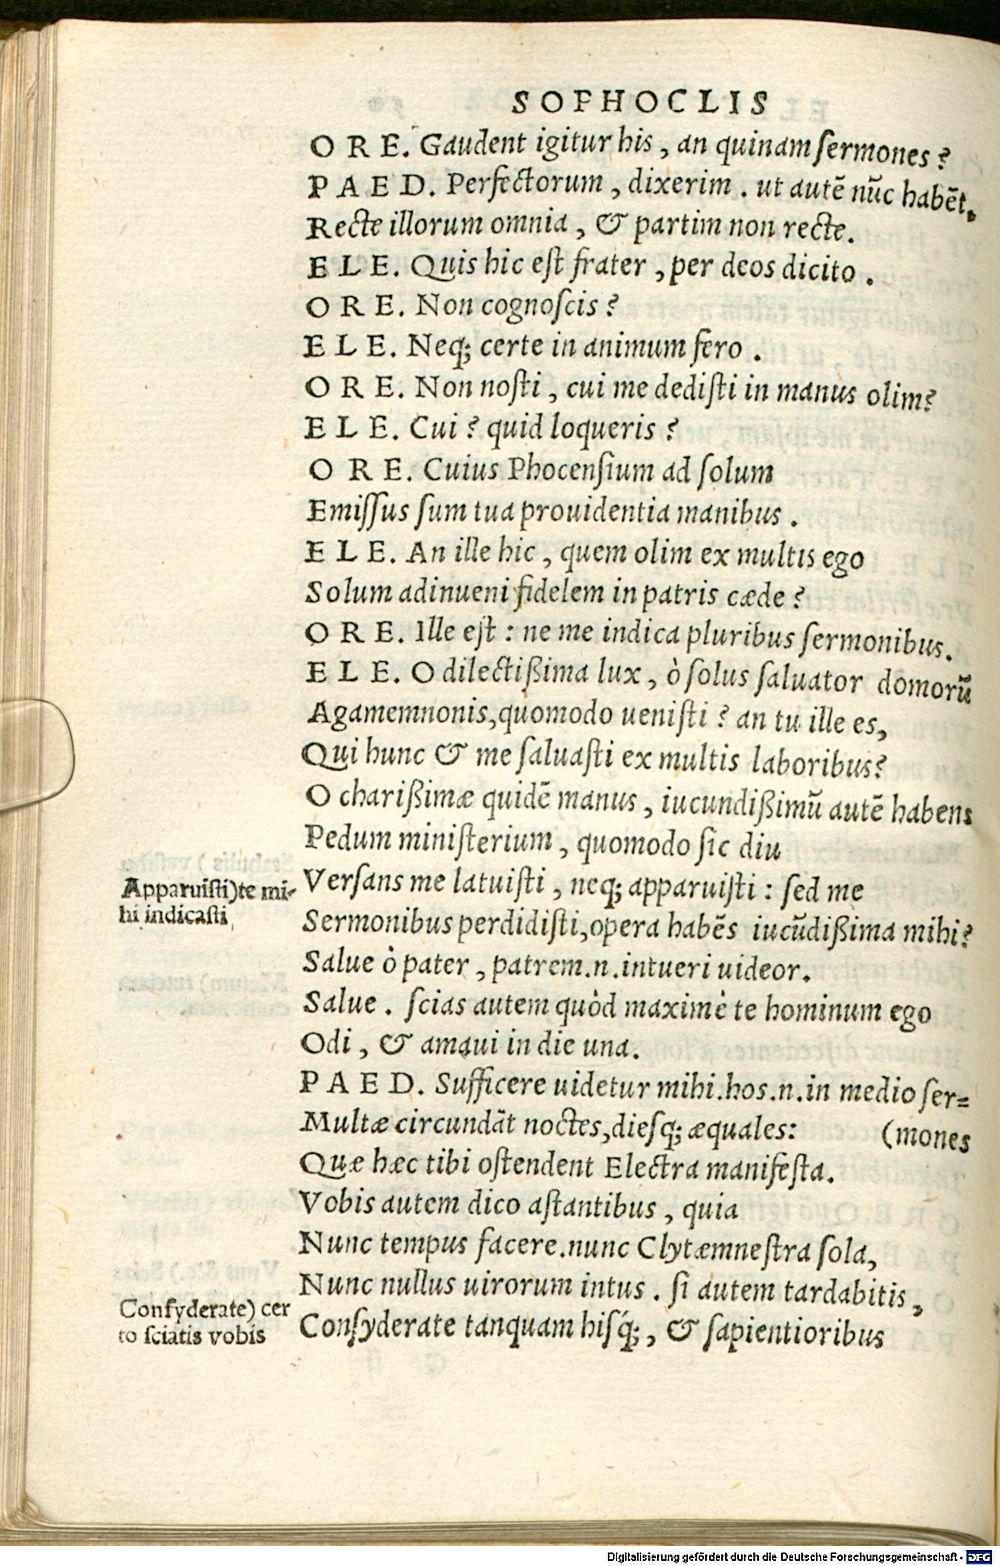 SOPHOCLIS
O R E. Gaudent igitur his, an quinam sermones?
P A E D. Perfectorum, dixerim. ut autē nūc habēt,
Recte illorum omnia, & partim non recte.
E L E. Quis hic est frater, per deos dicito.
O R E. Non cognoscis?
E L E. Neq; certe in animum fero.
O R E. Non nosti, cui me dedisti in manus olim?
E L E. Cui? quid loqueris?
O R E. Cuius Phocensium ad solum
Emissus sum tua prouidentia manibus.
E L E. An ille hic, quem olim ex multis ego
Solum adinueni fidelem in patris cæde?
O R E. Ille est: ne me indica pluribus sermonibus.
E L E. O dilectißima lux, ò solus saluator domorū
Agamemnonis, quomodo uenisti? an tu ille es,
Qui hunc & me saluasti ex multis laboribus?
O charißimæ quidē manus, iucundißimū autē habens
Pedum ministerium, quomodo sic diu
Apparuisti) te mi-
hi indicasti
Versans me latuisti, neq; apparuisti: sed me
Sermonibus perdidisti, opera habēs iucūdißima mihi?
Salue ò pater, patrem.n.intueri uideor.
Salue. scias autem quòd maximè te hominum ego
Odi, & amaui in die una.
P A E D. Sufficere uidetur mihi.hos.n.in medio ser=
Multæ circundāt noctes, diesq; æquales: (mones
Quæ hæc tibi ostendent Electra manifesta.
Vobis autem dico astantibus, quia
Nunc tempus facere.nunc Clytæmnestra sola,
Nunc nullus uirorum intus. si autem tardabitis,
Consyderate) cer
to sciatis vobis
Consyderate tanquam hisq́;, & sapientioribus
Digitalisierung gefördert durch die Deutsche Forschungsgemeinschaft - DFG